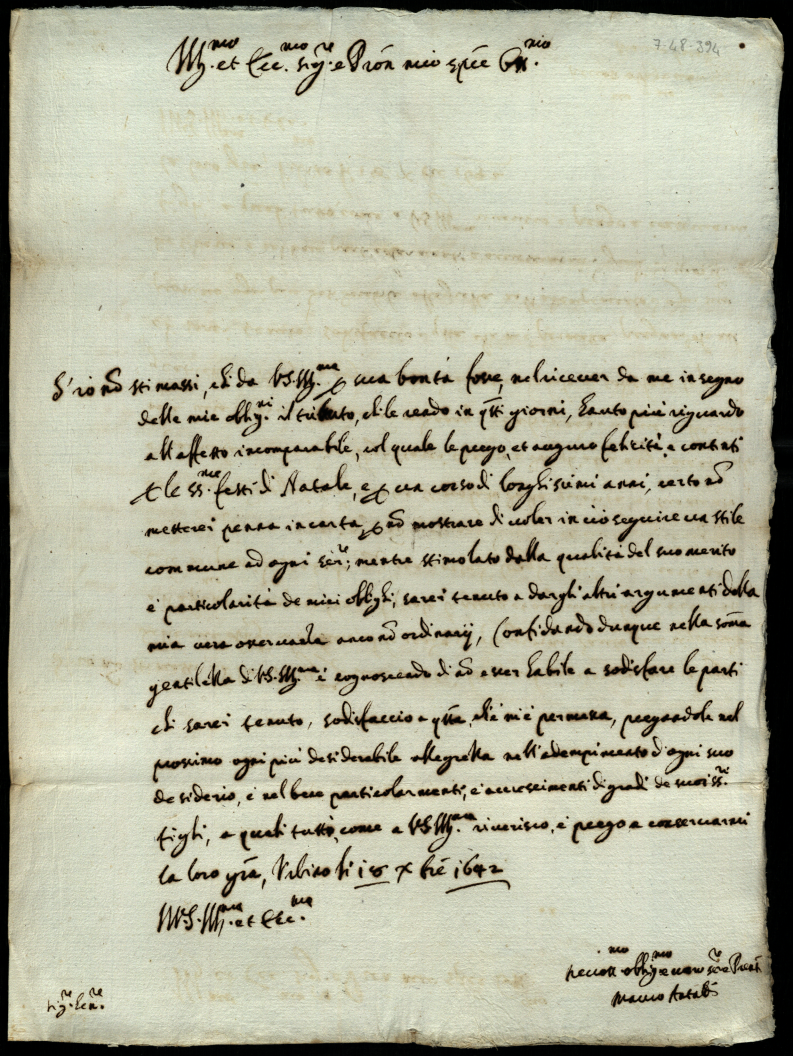 7-48-394
Ill.mo et Ecc.mo sig.re e Prõn mio
S'io nõ stimassi, che da V.S. Ill.ma p sua bontà fosse, nel ricever da me in segno
delle mie oblig.ni il tributo, che le rendo in q̃sti giorni, hauto più riguardo
all'affetto incomparabile, col quale le prego, et auguro felicità, e contenti
p le ss.me feste di Natale, e p un corso di longhissimi anni, certo nõ
metterei penna in carta, p nõ mostrare di voler in ciò seguire un stile
commune ad ogni ser.re; mentre stimolato dalla qualità del suo merito
e particolarità de miei oblighi, sarei tenuto a dargli altri argumenti della
mia vera osservanza anco nõ ordinarij, Confidando dunque nella somã
gentilezza di V.S. Ill.ma e cognoscendo di nõ esser habile a sodisfare le parti
che sarei tenuto, sodisfaccio a q̃sta, che m'è permessa, pregandole nel
prossimo ogni più desiderabile allegrezza nell'adempimento d'ogni suo
desiderio, e nel bene particolarmente, e accrescimenti di gradi de suoi ss.ri
figli, a quali tutti, come a V.S. Ill.ma riverisco, e prego a conservarmi
la loro grã, Urbino li 18 Xbre 1642
Di V.S. Ill.ma et Ecc.ma
oblig.mo ser.re
Mauro
Sig.re